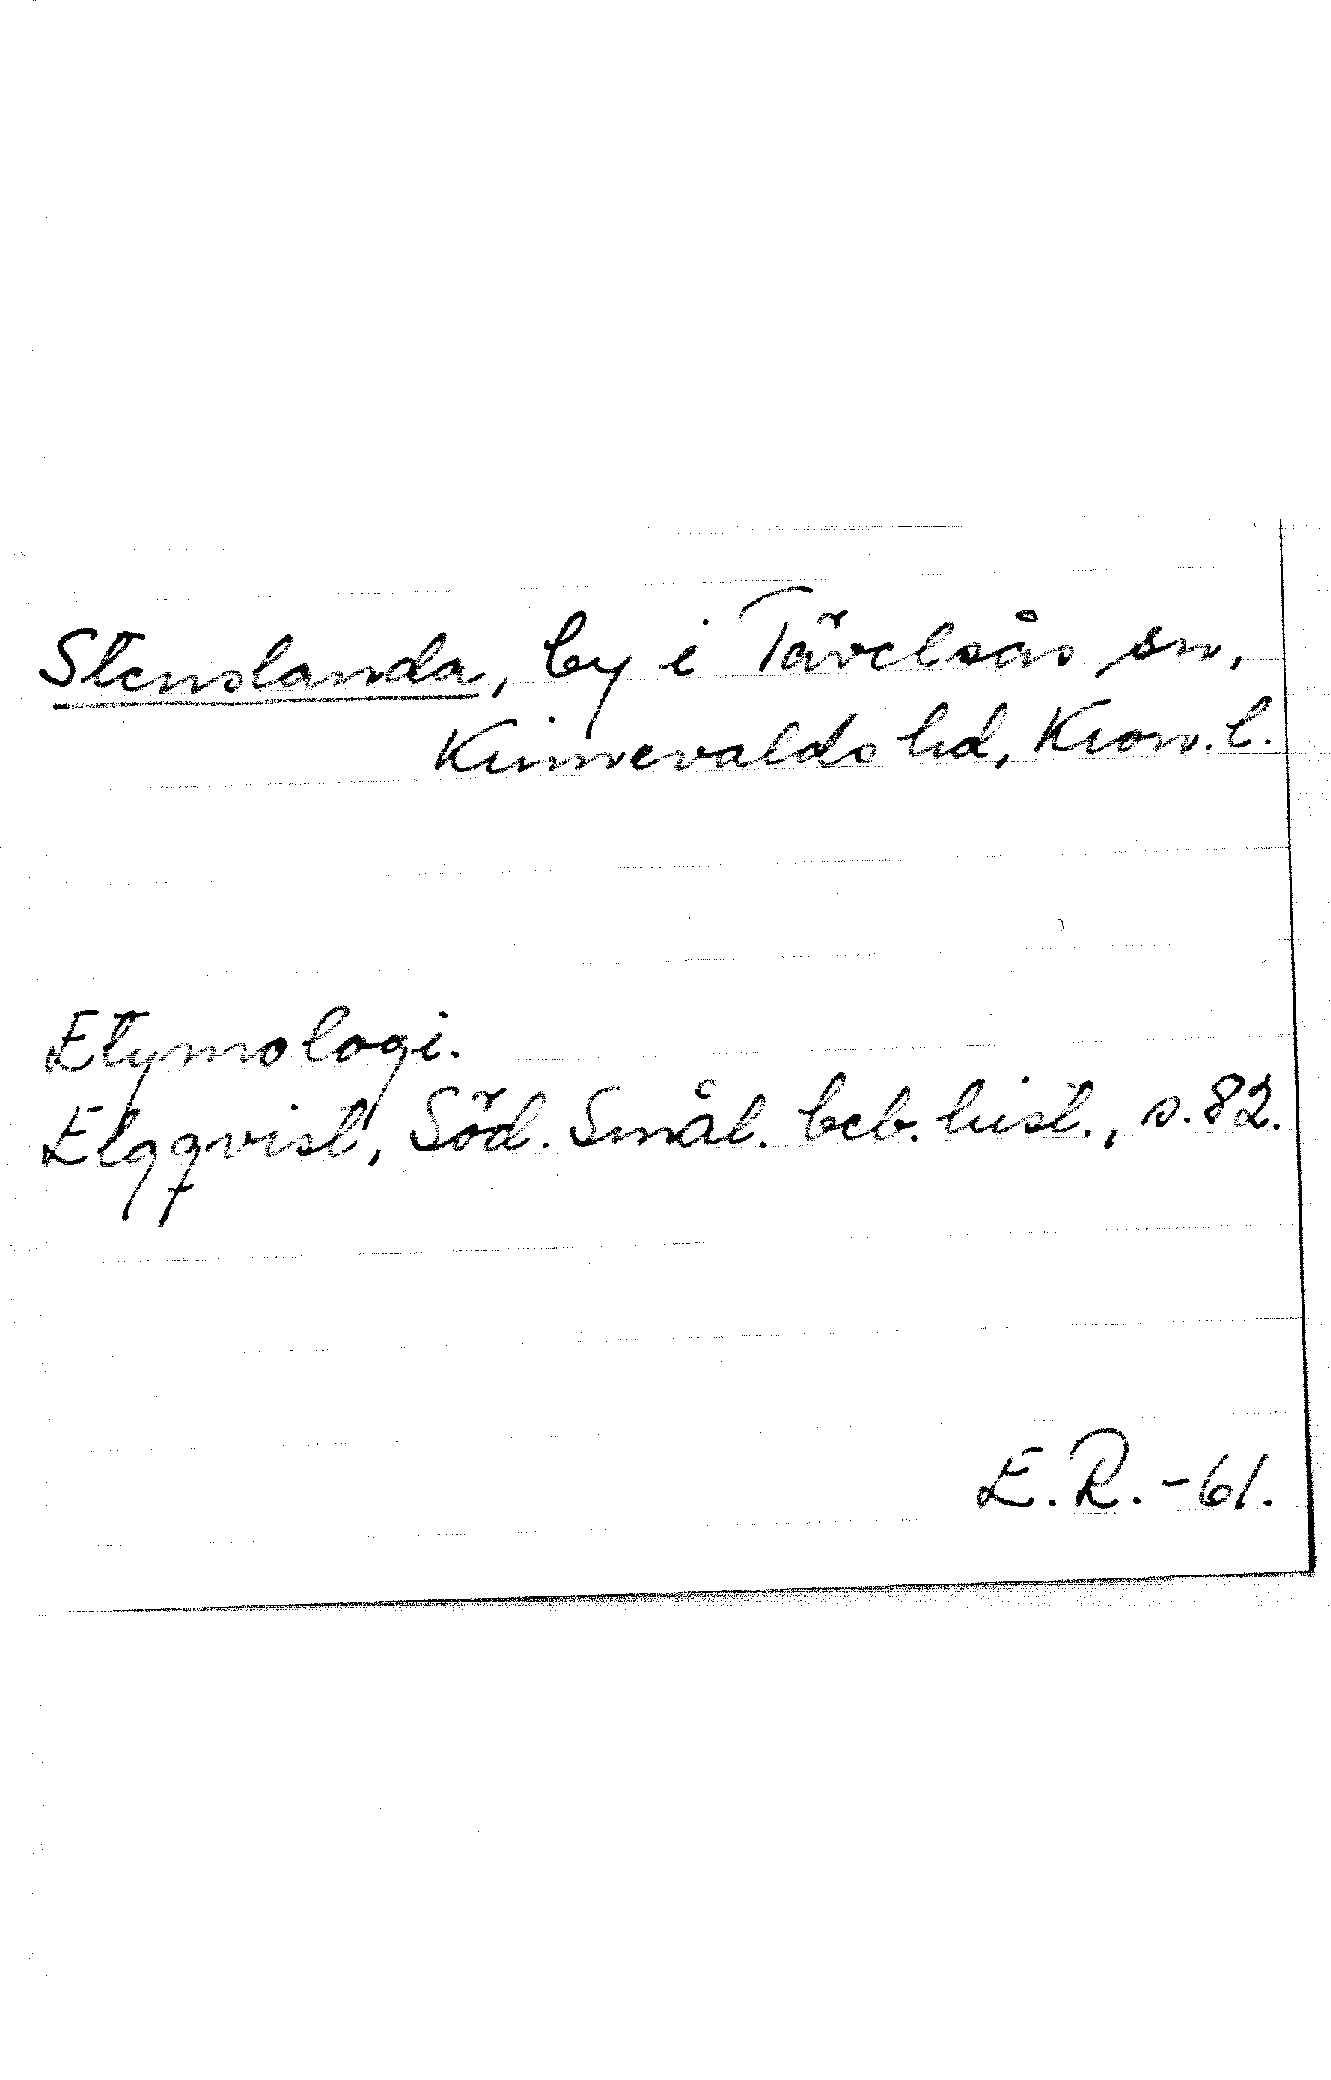 Stenslanda, by i Tävelsås sn,
Kinnevalds hd, Kron. l.
Etymologi.
Elgqvist, Söd. Smål. beb. hist., s. 82.
E. R. -61.